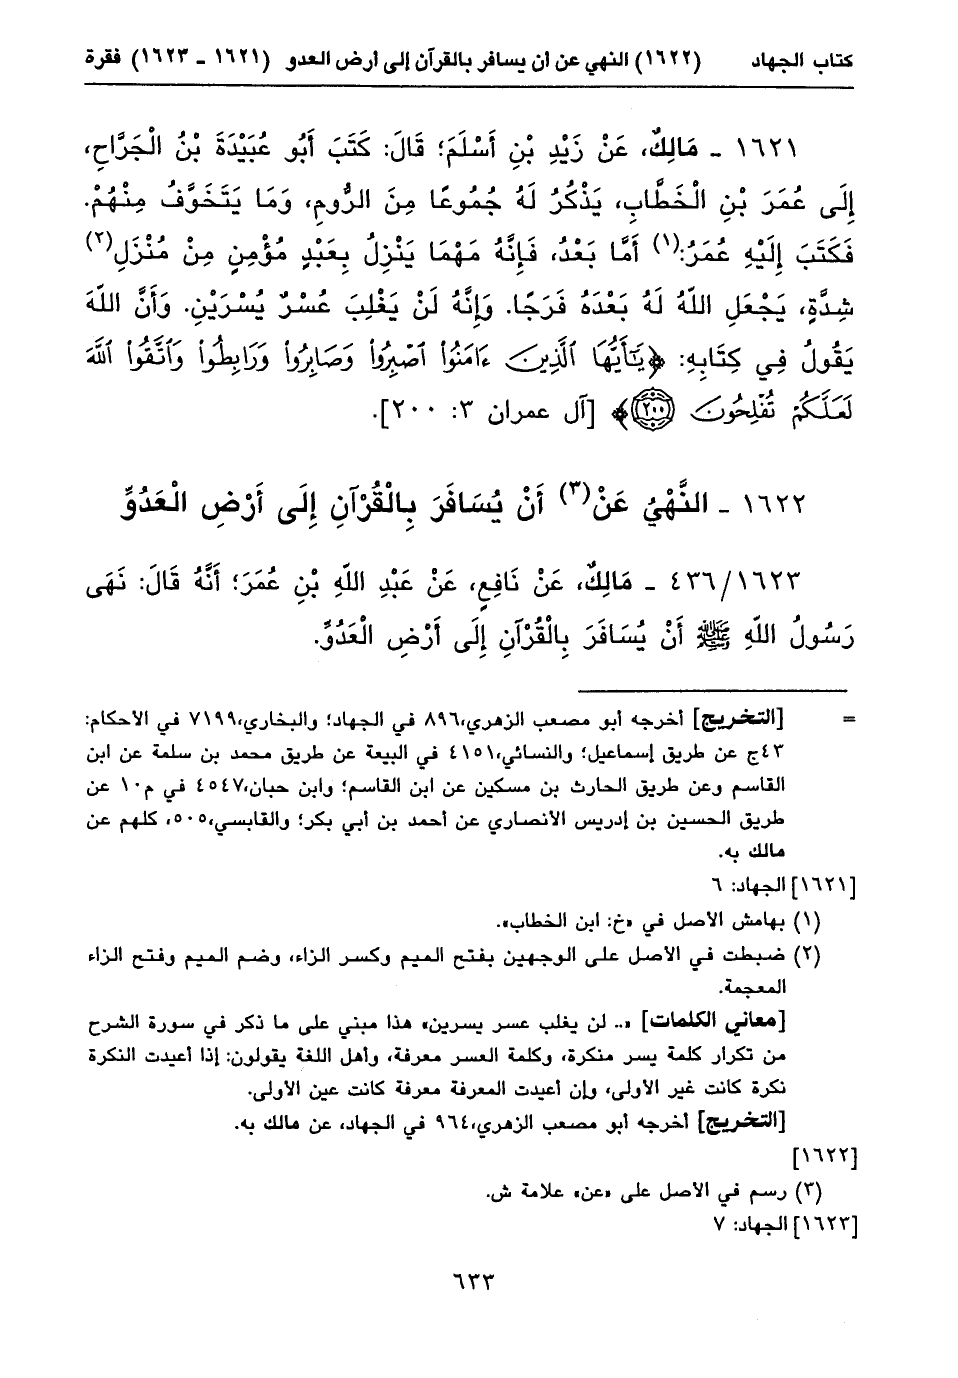 كتاب الجهاد (١٦٢٢) النهي عن أن يسافر بالقرآن إلى أرض العدو (١٦٢١ - ١٦٢٣) فقرة
١٦٢١ - مَالِكٌ، عَنْ زَيْدِ بْنِ أَسْلَمَ؛ قَالَ: كَتَبَ أَبُو عُبَيْدَةَ بْنُ الْجَرَّاحِ،
إِلَى عُمَرَ بْنِ الْخَطَّابِ، يَذْكُرُ لَهُ جُمُوعًا مِنَ الرُّومِ، وَمَا يَتَخَوَّفُ مِنْهُمْ.
فَكَتَبَ إِلَيْهِ عُمَرُ:(١) أَمَّا بَعْدُ، فَإِنَّهُ مَهْمَا يَنْزِلُ بِعَبْدٍ مُؤْمِنٍ مِنْ مُنْزَلِ(٢)
شِدَّةٍ، يَجْعَلِ اللّهُ لَهُ بَعْدَهُ فَرَجًا. وَإِنَّهُ لَنْ يَغْلِبَ عُسْرٌ يُسْرَيْنِ. وَأَنَّ اللّهَ
يَقُولُ فِي كِتَابِهِ: ﴿يَٰٓأَيُّهَا ٱلَّذِينَ ءَامَنُوا۟ ٱصْبِرُوا۟ وَصَابِرُوا۟ وَرَابِطُوا۟ وَٱتَّقُوا۟ ٱللَّهَ
لَعَلَّكُمْ تُفْلِحُونَ ٢٠٠﴾ [آل عمران ٣: ٢٠٠].
١٦٢٢ - النَّهْيُ عَنْ(٣) أَنْ يُسَافَرَ بِالْقُرْآنِ إِلَى أَرْضِ الْعَدُوِّ
٤٣٦/١٦٢٣ - مَالِكٌ، عَنْ نَافِعٍ، عَنْ عَبْدِ اللّهِ بْنِ عُمَرَ؛ أَنَّهُ قَالَ: نَهَى
رَسُولُ اللّهِ ﷺ أَنْ يُسَافَرَ بِالْقُرْآنِ إِلَى أَرْضِ الْعَدُوِّ.
= [التخريج] أخرجه أبو مصعب الزهري،٨٩٦ في الجهاد؛ والبخاري،٧١٩٩ في الأحكام:
٤٣ج عن طريق إسماعيل؛ والنسائي،٤١٥١ في البيعة عن طريق محمد بن سلمة عن ابن
القاسم وعن طريق الحارث بن مسكين عن ابن القاسم؛ وابن حبان،٤٥٤٧ في م١٠ عن
طريق الحسين بن إدريس الأنصاري عن أحمد بن أبي بكر؛ والقابسي،٥٠٥، كلهم عن
مالك به.
[١٦٢١] الجهاد: ٦
(١) بهامش الأصل في «خ: ابن الخطاب».
(٢) ضبطت في الأصل على الوجهين بفتح الميم وكسر الزاء، وضم الميم وفتح الزاء
المعجمة.
[معاني الكلمات] «.. لن يغلب عسر يسرين» هذا مبني على ما ذكر في سورة الشرح
من تكرار كلمة يسر منكرة، وكلمة العسر معرفة، وأهل اللغة يقولون: إذا أعيدت النكرة
نكرة كانت غير الأولى، وإن أعيدت المعرفة معرفة كانت عين الأولى.
[التخريج] أخرجه أبو مصعب الزهري،٩٦٤ في الجهاد، عن مالك به.
[١٦٢٢]
(٣) رسم في الأصل على «عن» علامة ش.
[١٦٢٣] الجهاد: ٧
٦٣٣